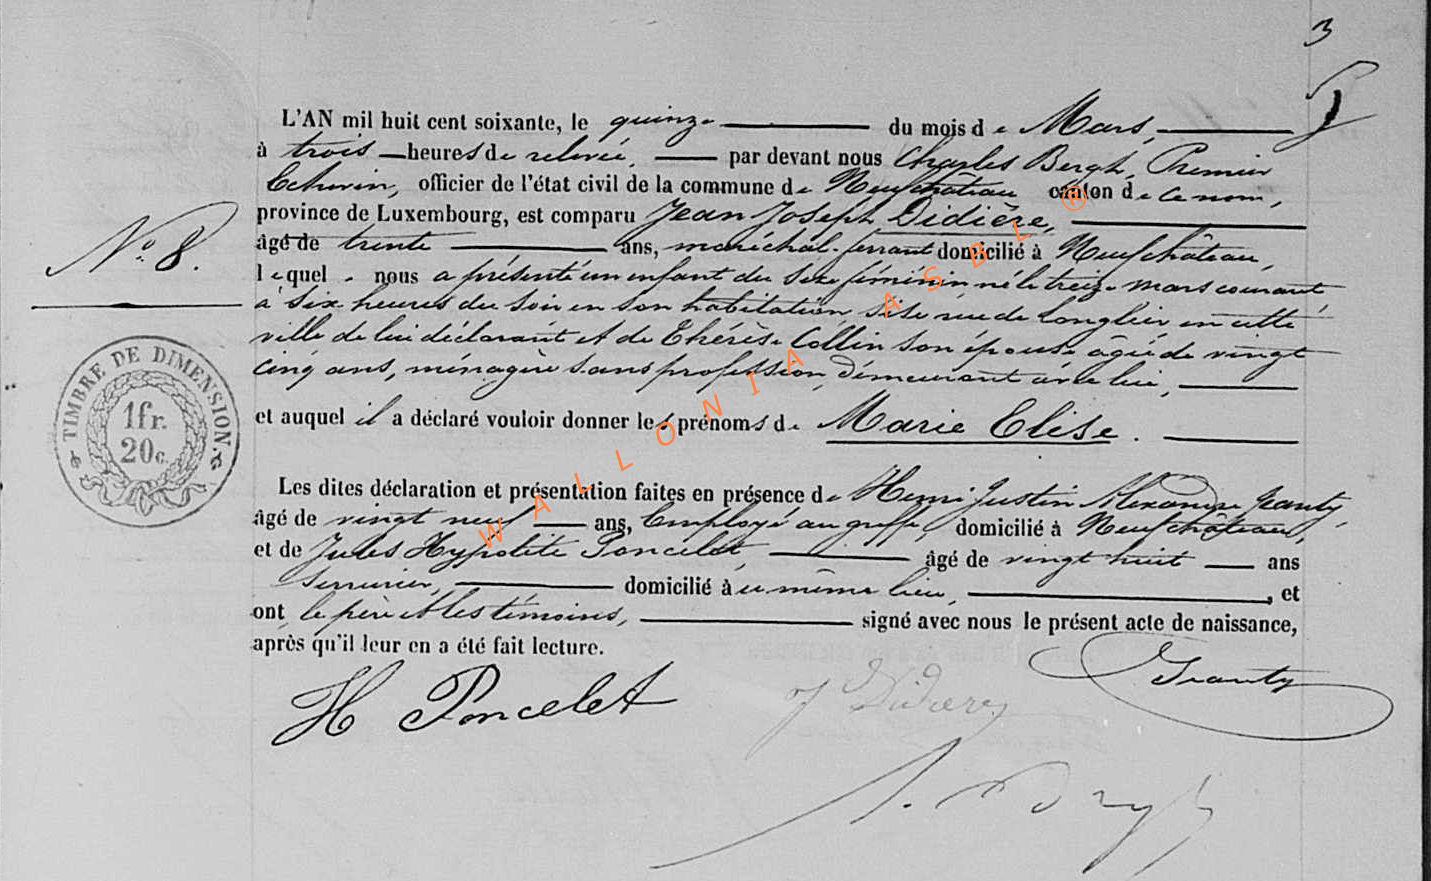 3
L'AN mil huit cent soixante, le quinze du mois de Mars,
à trois heures de relevée, par devant nous Charles Bergh, Premier
Echevin, officier de l'état civil de la commune de Neufchâteau canton de ce nom,
province de Luxembourg, est comparu Jean Joseph Didière,
âgé de trente ans, maréchal-ferrant domicilié à Neufchâteau,
N° 8.
lequel nous a présenté un enfant du sexe féminin né le treize mars courant
à six heures du soir en son habitation, sise rue de Longlier en cette
ville de lui déclarant et de Thérèse Collin son épouse âgée de vingt
cinq ans, ménagère sans profession, demeurant avec lui,
TIMBRE DE DIMENSION
1 fr.
20 c.
et auquel il a déclaré vouloir donner les prénoms de Marie Elise.
Les dites déclaration et présentation faites en présence de Henri Justin Alexandre Granty,
âgé de vingt neuf ans, Employé au greffe, domicilié à Neufchâteau,
et de Jules Hypolite Poncelet, âgé de vingt huit ans
serrurier, domicilié à u même lieu, et
ont, le père et les témoins, signé avec nous le présent acte de naissance,
après qu'il leur en a été fait lecture.
H Poncelet
J Didiere
Granty
WALLONIA ASBL ®